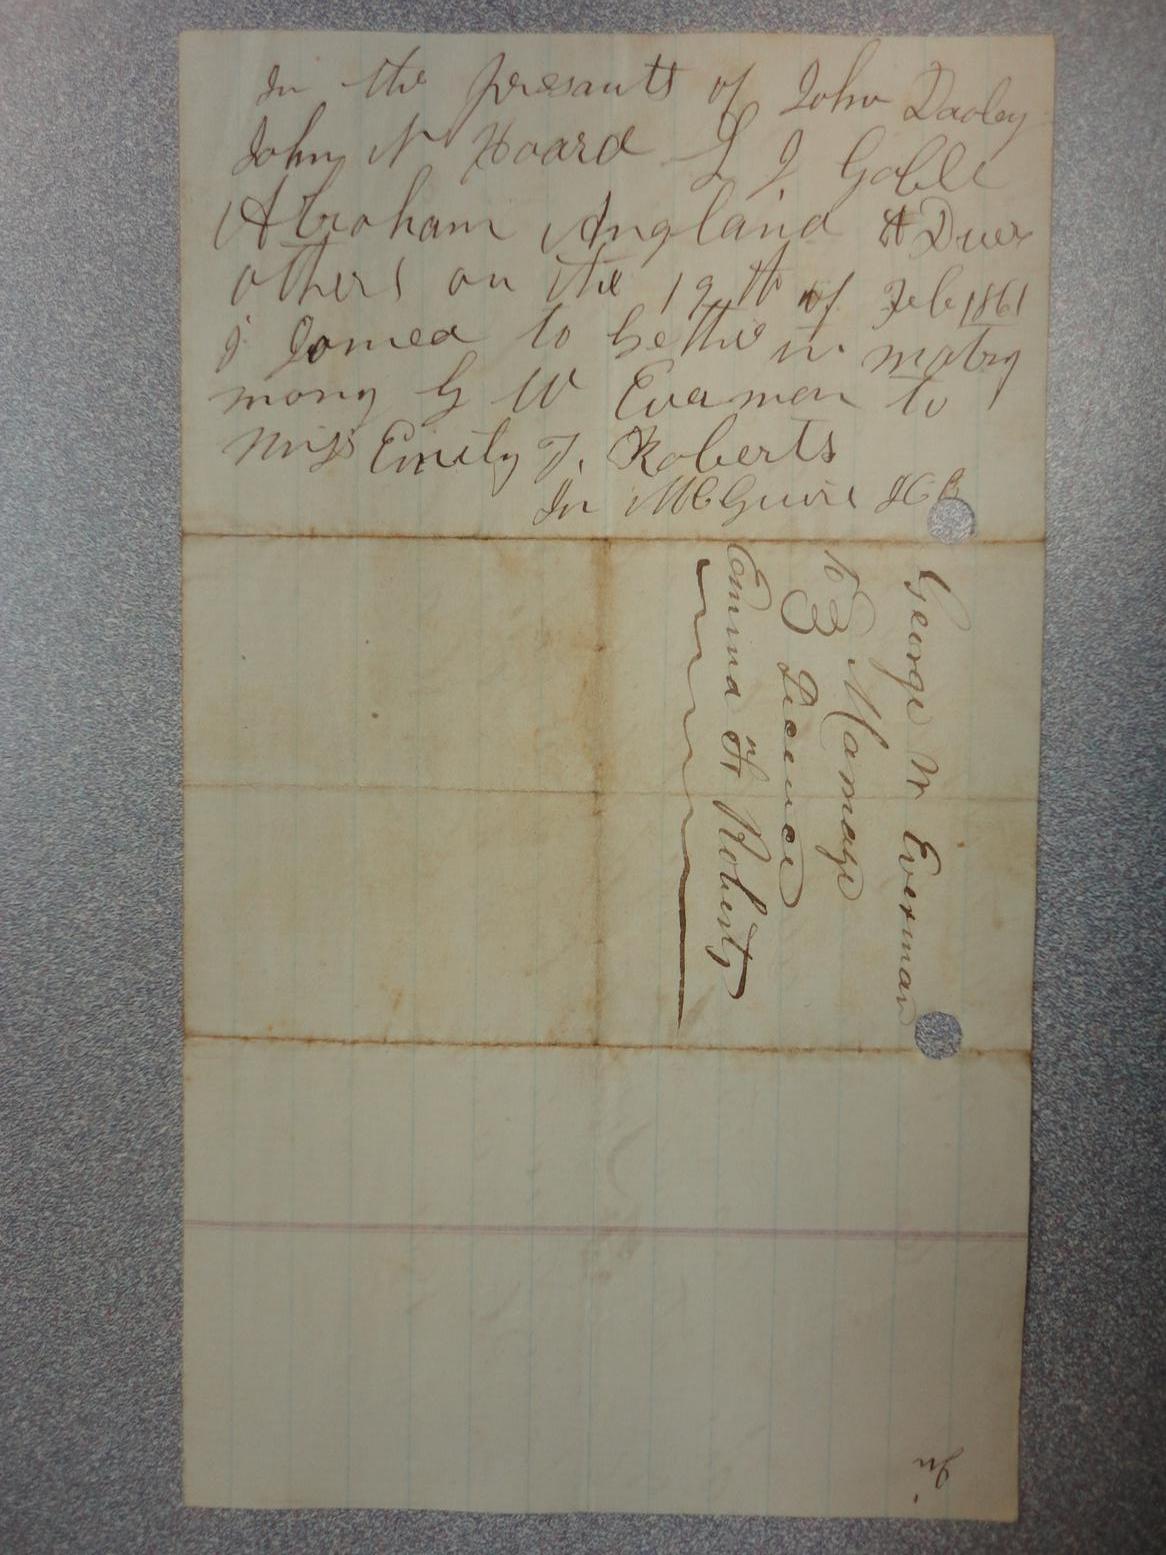 In the presants of John Dooley
John N Hoard L J Goble
Abraham Angland &
others on the 19th of Feb 1861
I Joined to gether in matry
mony G W Evermon to
Miss Emily T. Roberts
Jn McGuire
George W Everman
to 3 Marriage
Licence
Emma H Roberts
Jn